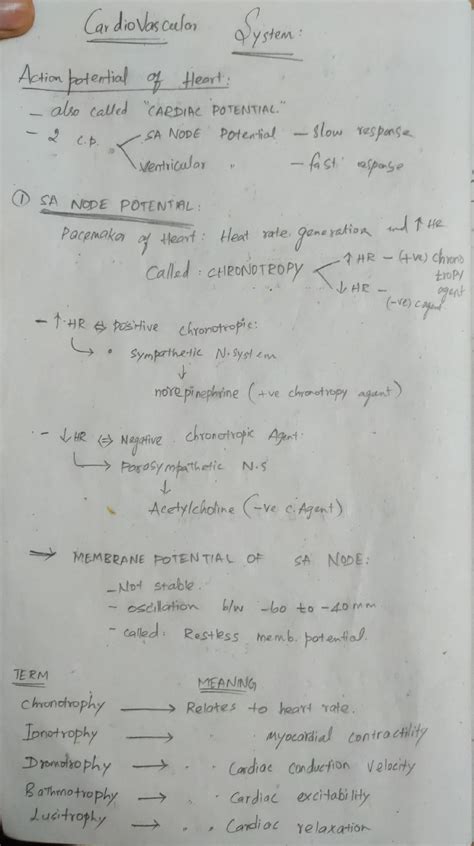 CardioVascular System:
Action potential of Heart:
- also called "CARDIAC POTENTIAL."
- 2 c.p. SA NODE Potential - slow response
Ventricular " - fast response
① SA NODE POTENTIAL:
Pacemaker of Heart: Heat rate generation and ↑ HR
Called: CHRONOTROPY ↑ HR - (+ve) chrono tropy agent
↓ HR - (-ve) c agent
- ↑ HR ⇔ Positive chronotropic:
↳ • Sympathetic N. system
↓
norepinephrine (+ve chronotropy agent)
- ↓ HR ⇔ Negative chronotropic Agent:
↳ Parasympathetic N.S
↓
Acetylcholine (-ve c. Agent)
→ MEMBRANE POTENTIAL OF SA NODE:
- Not stable.
- oscillation b/w -60 to -40 mm
- called: Restless memb. potential.
TERM MEANING
Chronotrophy → Relates to heart rate.
Ionotrophy → " " Myocardial contractility
Dromotrophy → " " Cardiac conduction velocity
Bathmotrophy → " " Cardiac excitability
Lucitrophy → " " Cardiac relaxation